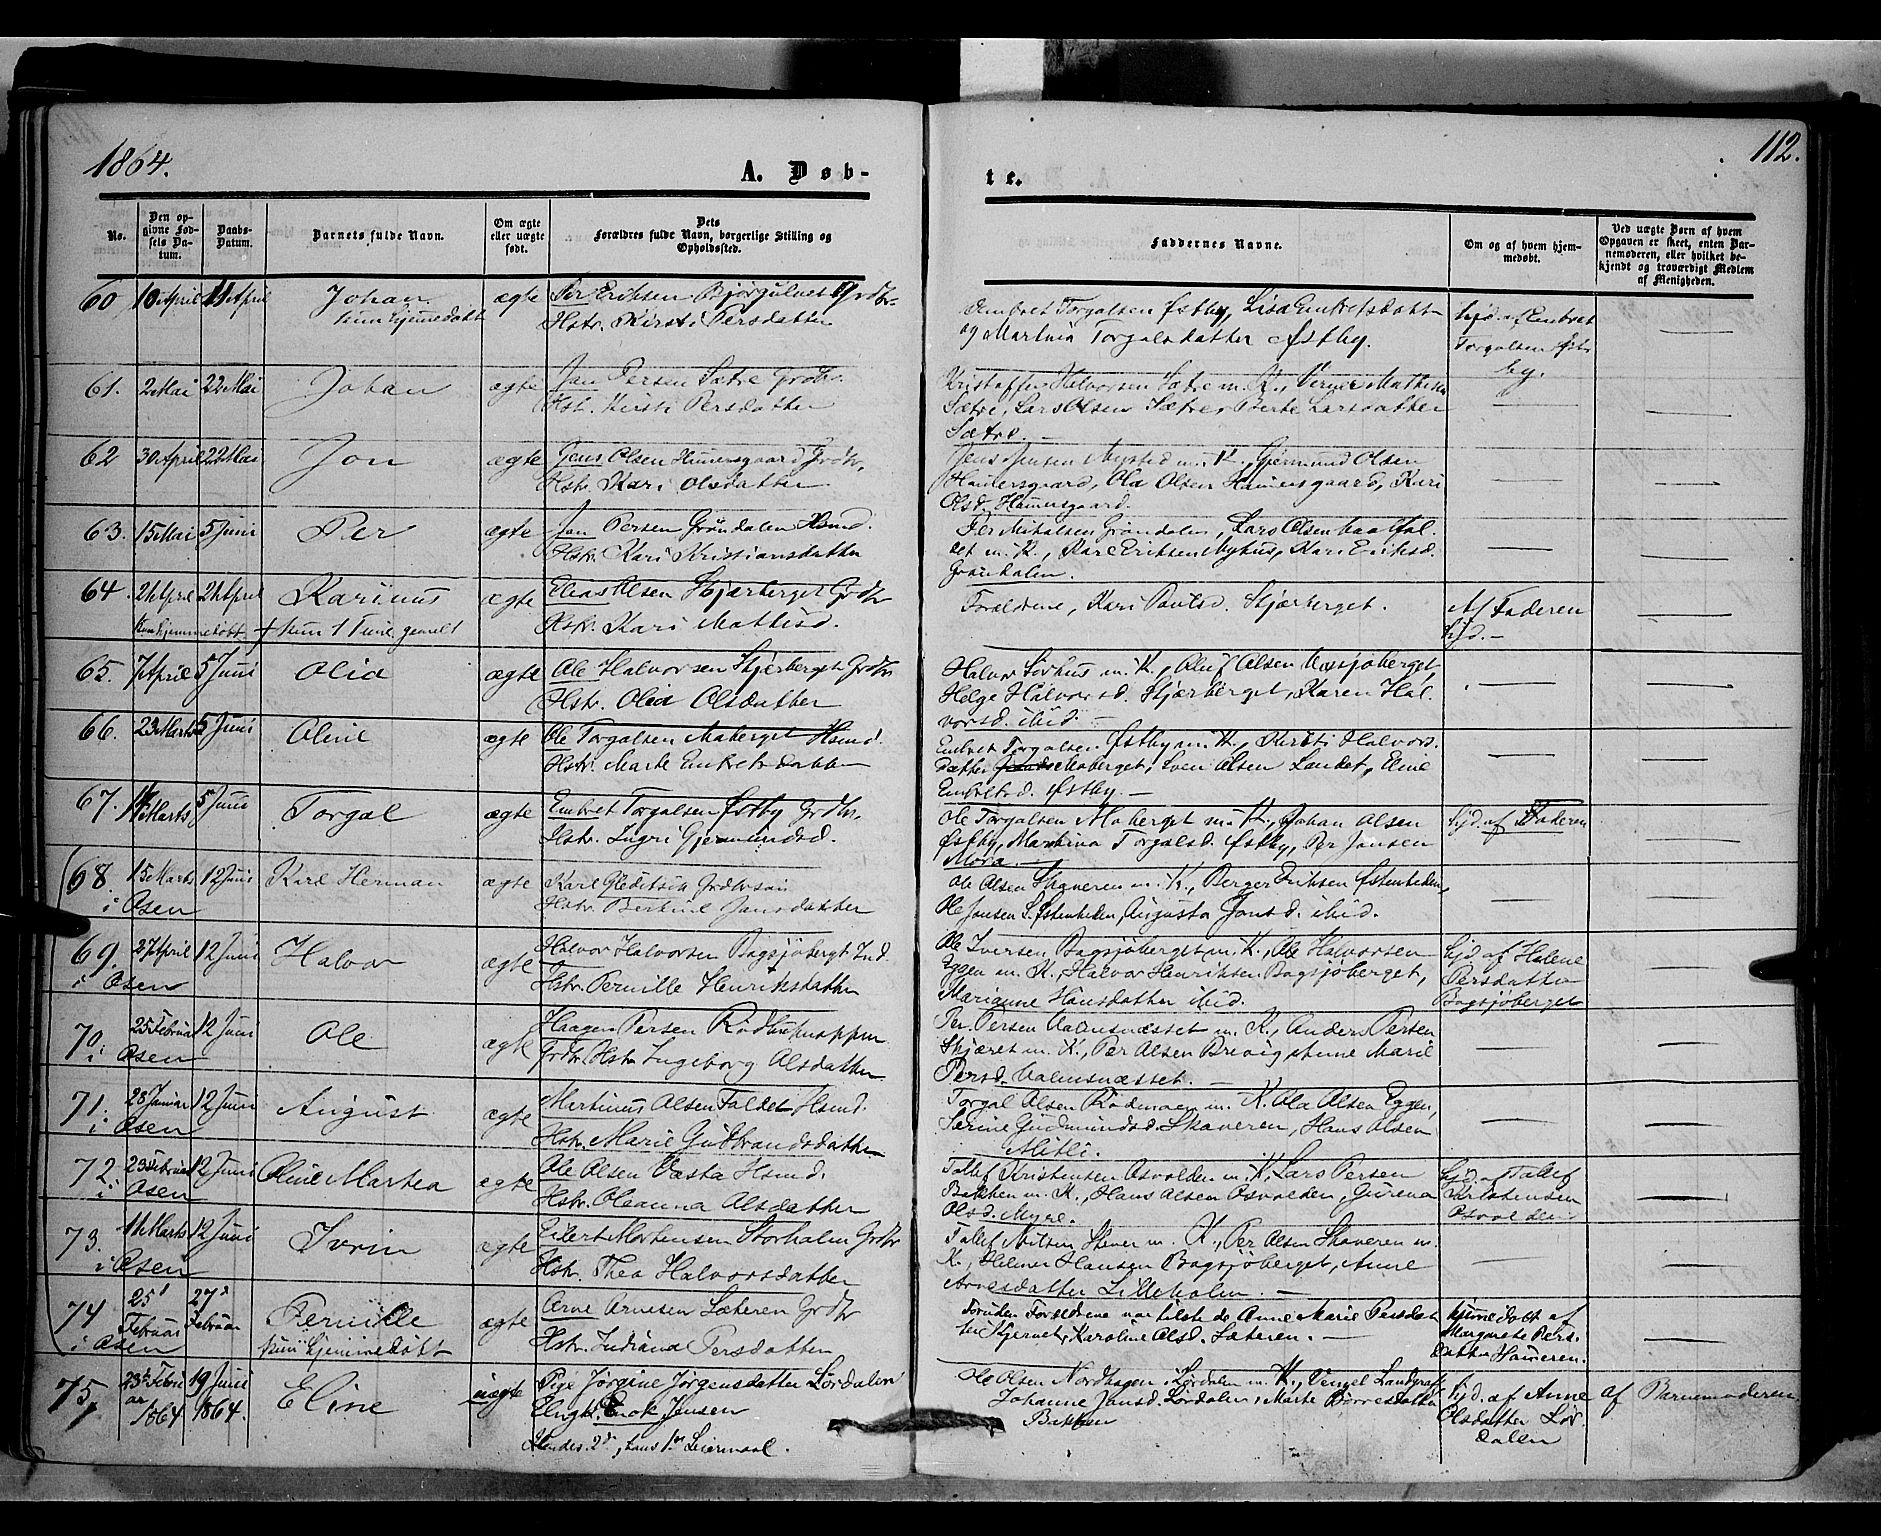 1864.
A. Døb-
te.
112.
No.
Den op-
givne Fød-
sels Da-
tum.
Daabs-
Datum.
Barnets fulde Navn.
Om ægte
eller uægte
født.
Dets
Forældres fulde Navn, borgerlige Stilling og
Opholdssted.
Faddernes Navne.
Om og af hvem hjem-
medøbt.
Ved uægte Børn af hvem
Opgaven er skeet, enten Bar-
nemoderen, eller hvilket be-
kjendt og troværdigt Medlem
af Menigheden.
60 10 April 11 April Johan ægte Per Eriksen Grdbr.
kun hjemmedøbt Hstr. Kirsti Persdatter
Embret Torgalsen Østby, Lisa Embretsdatter
og Martina Torgalsdatter Østby.
Hjd. af Embret
Torgalsen Øst-
by.
61. 2 Mai 22 Mai Johan ægte Jon Persen Sætre Grdbr.
Hstr. Kirsti Persdatter
Kristoffer Halvorsen Sætre m. K., Verner Mathisen
Sætre, Lars Olsen Sætre, Berte Larsdatter
Sætre. —
62 30 April 22 Mai Jon ægte Jens Olsen Humersgaard Grdbr.
Hstr. Kari Olsdatter
Jens Jensen Nysted m. K., Gjermund Olsen
Humersgaard, Ola Olsen Humersgaard, Kari
Olsd. Humersgaard.
63. 15 Mai 5 Juni Per ægte Jon Persen Grøndalen Hsmd.
Hstr. Kari Kristiansdatter
Per Mikalsen Grøndalen, Lars Olsen
m. K., Kari Eriksen Nyhus, Kari Eriksd.
Grøndalen.
64. 21 April 21 April Karinus ægte Elias Olsen Skjærberget Grdbr
kun hjemmedøbt + kun 1 Time gamelt Hstr. Kari Mattisd.
Forældrene, Kari Paulsd. Skjærberget.
Af Faderen
hjd. —
65. 7 April 5 Juni Olia ægte Ole Halvorsen Skjærberget Grdbr
Hstr. Olea Olsdatter
Halvor Sørhus m. K., Oluf Olsen
Helge Halvorsd. Skjærberget, Karen Hal-
vorsd. ibid. —
66. 23 Marts 5 Juni Oline ægte Ole Torgalsen Moberget Hsmd.
Hstr. Marte Embretsdatter
Embret Torgalsen Østby m. K., Kirsti Halvors-
datter Moberget, Sven Olsen Landet, Eline
Embretsd. Østby. —
67. 14 Marts 5 Juni Torgal ægte Embret Torgalsen Østby Grdbr.
Hstr. Ingri Gjermundsd.
Ole Torgalsen Moberget m. K., Johan Olsen
Østby, Martina Torgalsd. Østby, Per Jonsen
Mora. —
Hjd. af Faderen
68 15 Marts 12 Juni Karl Herman ægte Karl Gleditsch Grdbrsøn
i Osen Hstr. Bertine Jonsdatter
Ole Olsen Skaveren m. K., Berger Eriksen Østenheden
Ole Jonsen S. Østenheden, Augusta Jonsd. ibid.
69. 27 April 12 Juni Halvor ægte Halvor Halvorsen Bagsjøberget Ind.
i Osen Hstr. Pernille Henriksdatter
Ole Iversen Bagsjøberget m. K., Ole Halvorsen
Eggen m. K., Halvor Henriksen Bagsjøberget,
Marianne Hansdatter ibid.
Hjd. af Helene
Persdatter
Bagsjøberget
70. 25 Februar 12 Juni Ole ægte Haagen Persen Rødhusknappen
i Osen Grdbr. Hstr. Ingeborg Olsdatter
Per Persen Valmsnæsset m. K., Anders Persen
Skjæret m. K., Per Olsen Brevig, Anne Marie
Persd. Valmsnæsset. —
71. 28 Januar 12 Juni August ægte Martinus Olsen Faldet Hsmd.
i Osen Hstr. Marie Gudbrandsdatter
Torgal Olsen Rødmoen m. K. Ola Olsen Eggen,
Serine Gudmundsd. Skaveren, Hans Olsen
Mitli.
72. 23 Februar 12 Juni Oline Martea ægte Ole Olsen Væsta Hsmd.
i Osen Hstr. Oleanna Olsdatter
Tollef Kristensen Osvolden m. K., Lars Persen
Bakken m. K., Hans Olsen Osvolden, Gurena
Olsd. Myre.
Hjd. af Tollef
Kristensen
Osvolden
73. 11 Marts 12 Juni Ivrin ægte Eilert Mortensen Storholm Grdbr
i Osen Hstr. Thea Halvorsdatter
Tollef Nilsen m. K., Per Olsen Skaveren m.
K., Helmer Hansen Bagsjøberget, Anne
Arnesdatter Lilleholm. —
74 25 Februar 27 Februar Pernille ægte Arne Arnesen Sæteren Grdbr
i Osen kun hjemmedøbt Hstr. Indiana Persdatter
Foruden Forældrene var tilstede Anne Marie Persdat-
ter Kjernet, Karoline Olsd. Sæteren. —
hjemmedøbt af
Margrete Pers-
datter Hameren.
75, 23de Febru- 19 Juni Eline uægte Pige Jørgine Jørgensdatter Lørdalen
ar 1864 1864. Ungk. Enok Jensen
Hendes 2d, hans 1ste Leiermaal.
Ole Olsen Nordhagen i Lørdalen m. K., Vensel Landgraff
Johanne Jonsd. Lørdalen, Marte Børresdatter
Bakken
Hjd. af Anne
Olsdatter Lør-
dalen
af Barnemoderen.